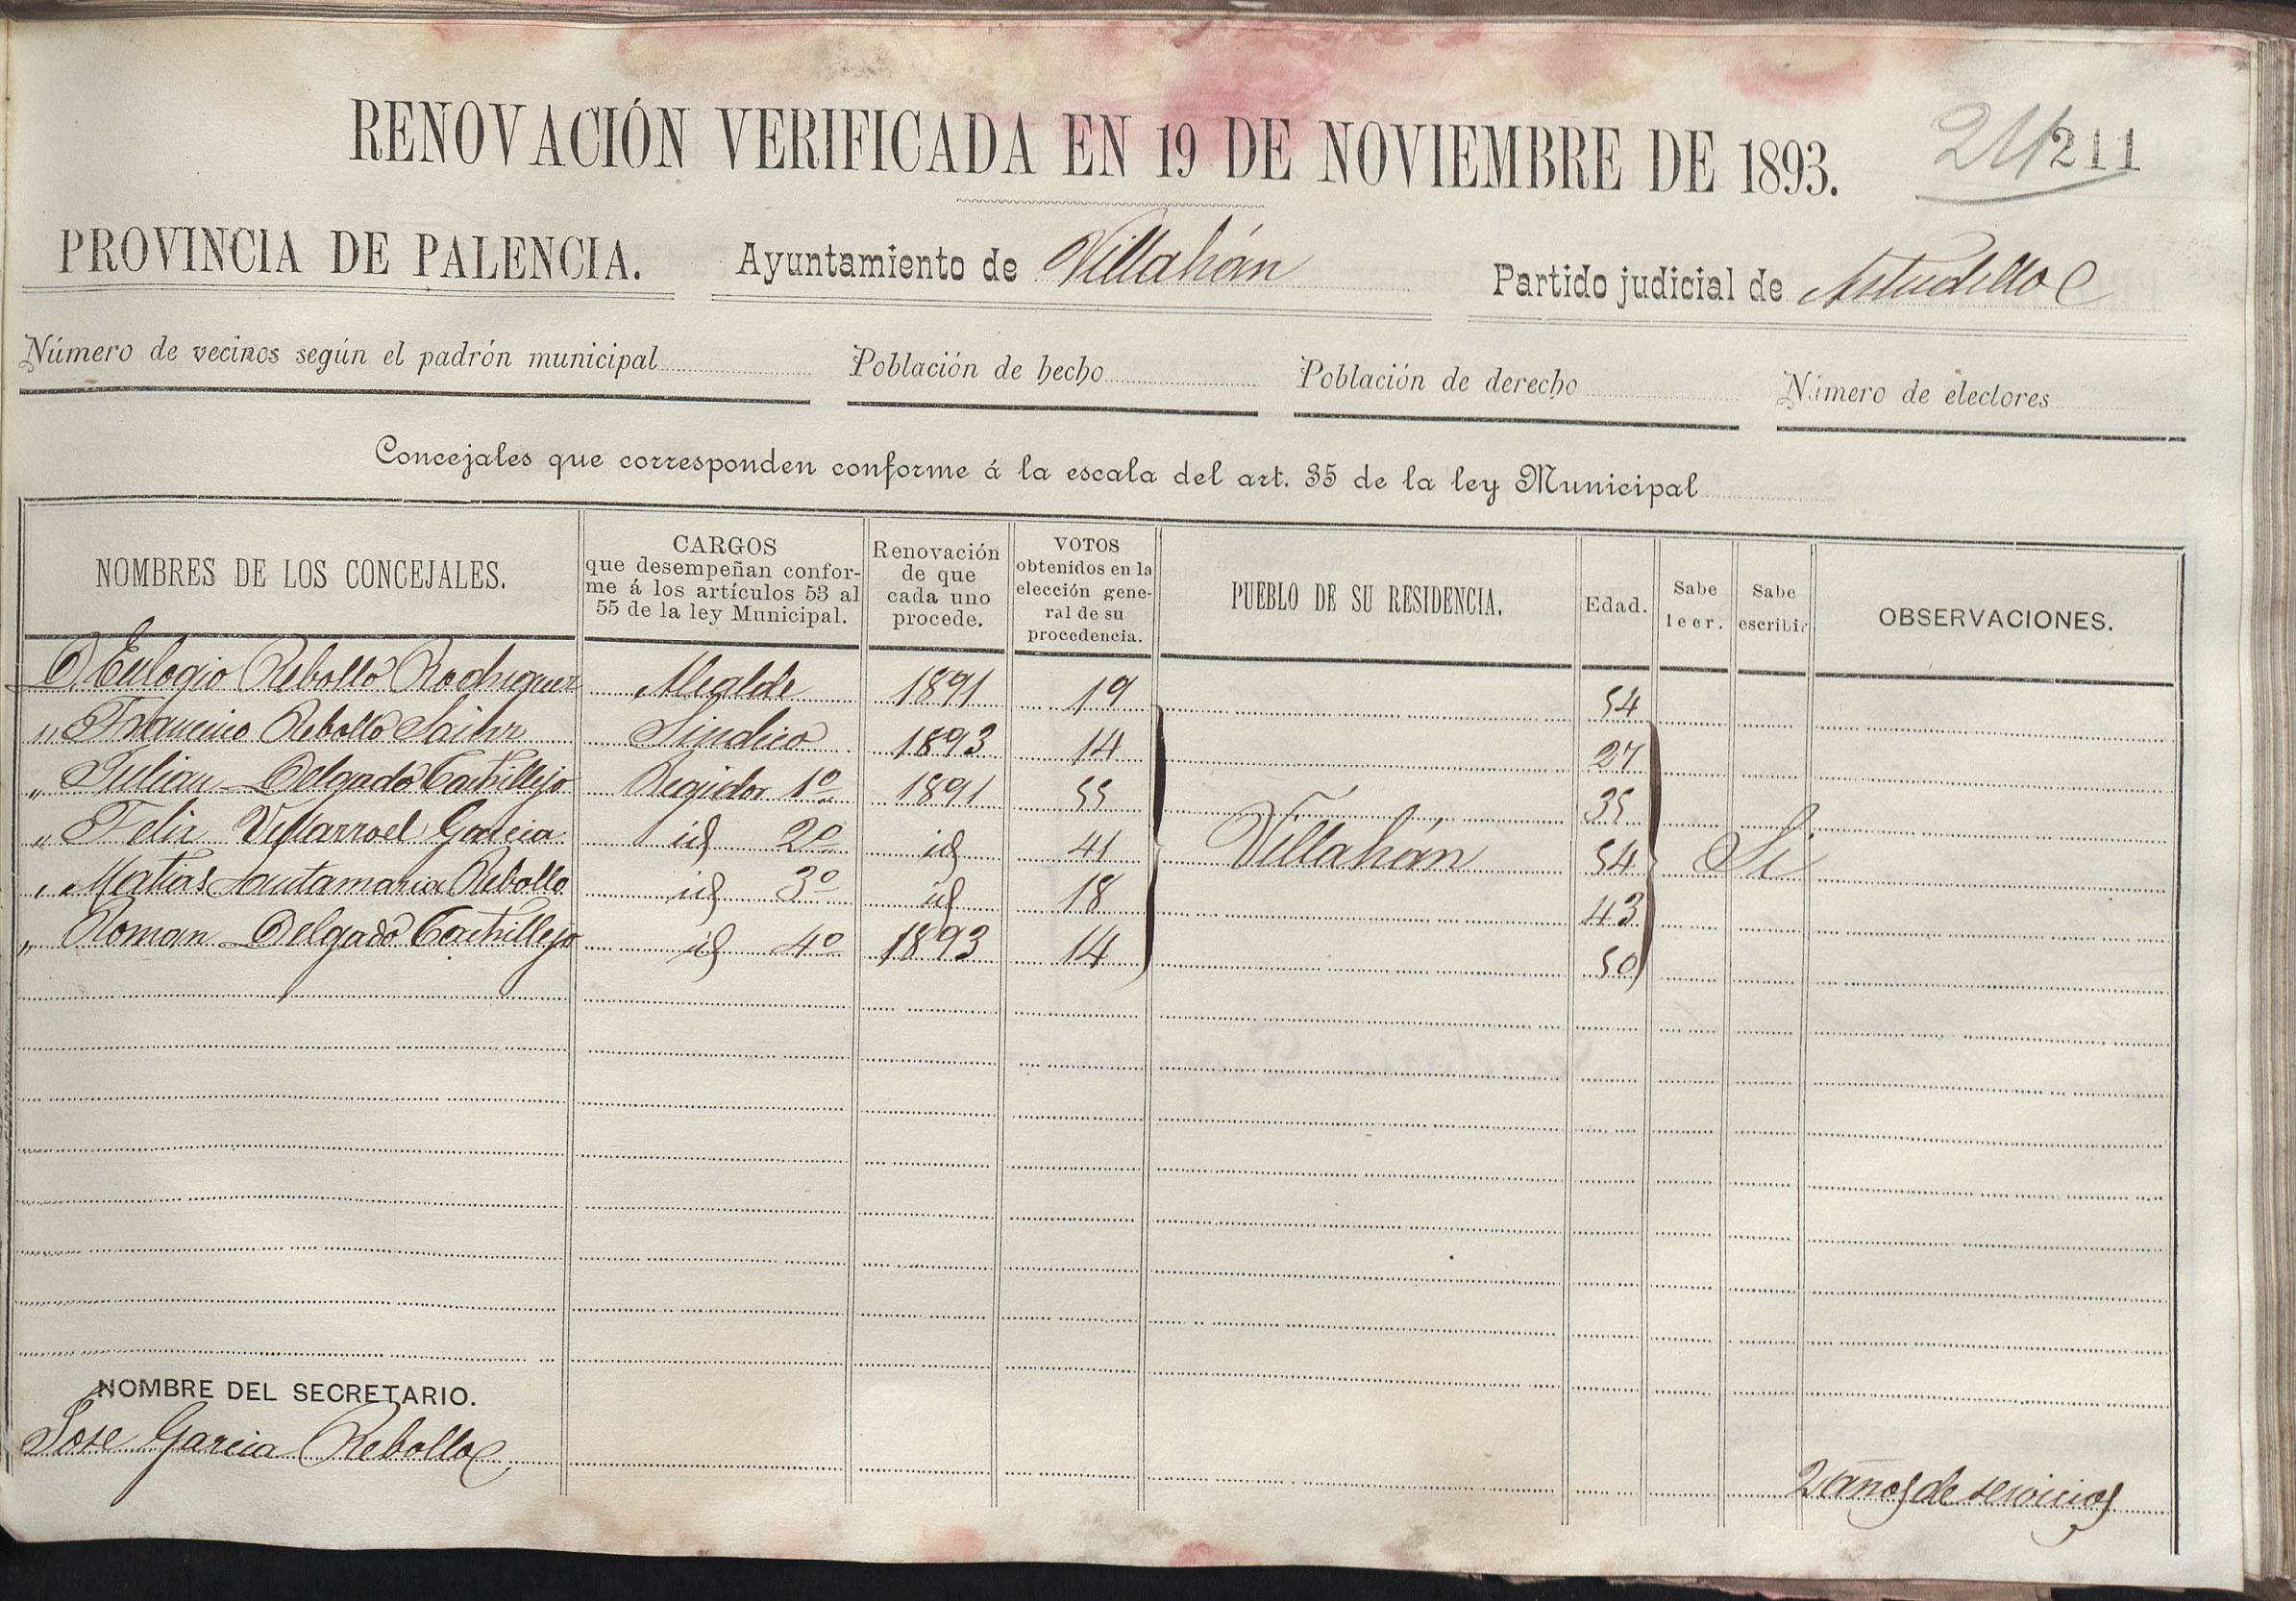 RENOVACIÓN VERIFICADA EN 19 DE NOVIEMBRE DE 1893. 211 211
PROVINCIA DE PALENCIA. Ayuntamiento de Villahán Partido judicial de Astudillo
Número de vecinos según el padrón municipal Población de hecho Población de derecho Número de electores
Concejales que corresponden conforme á la escala del art. 35 de la ley Municipal
NOMBRES DE LOS CONCEJALES.
CARGOS
que desempeñan confor-
me á los artículos 53 al
55 de la ley Municipal.
Renovación
de que
cada uno
procede.
VOTOS
obtenidos en la
elección gene-
ral de su
procedencia.
PUEBLO DE SU RESIDENCIA.
Edad.
Sabe
leer.
Sabe
escribir
OBSERVACIONES.
D. Eulogio Rebollo Rodriguez Alcalde 1891 19 54
" Francisco Rebollo Sainz Sindico 1893 14 27
" Julian Delgado Castillejo Regidor 1º 1891 55 35
" Felix Villarroel Garcia id 2º id 41 Villahán 54 Si
" Matias Santamaria Rebollo id 3º id 18 43
" Roman Delgado Castillejo id 4º 1893 14 50
NOMBRE DEL SECRETARIO.
Jose Garcia Rebollo
2 años de servicios